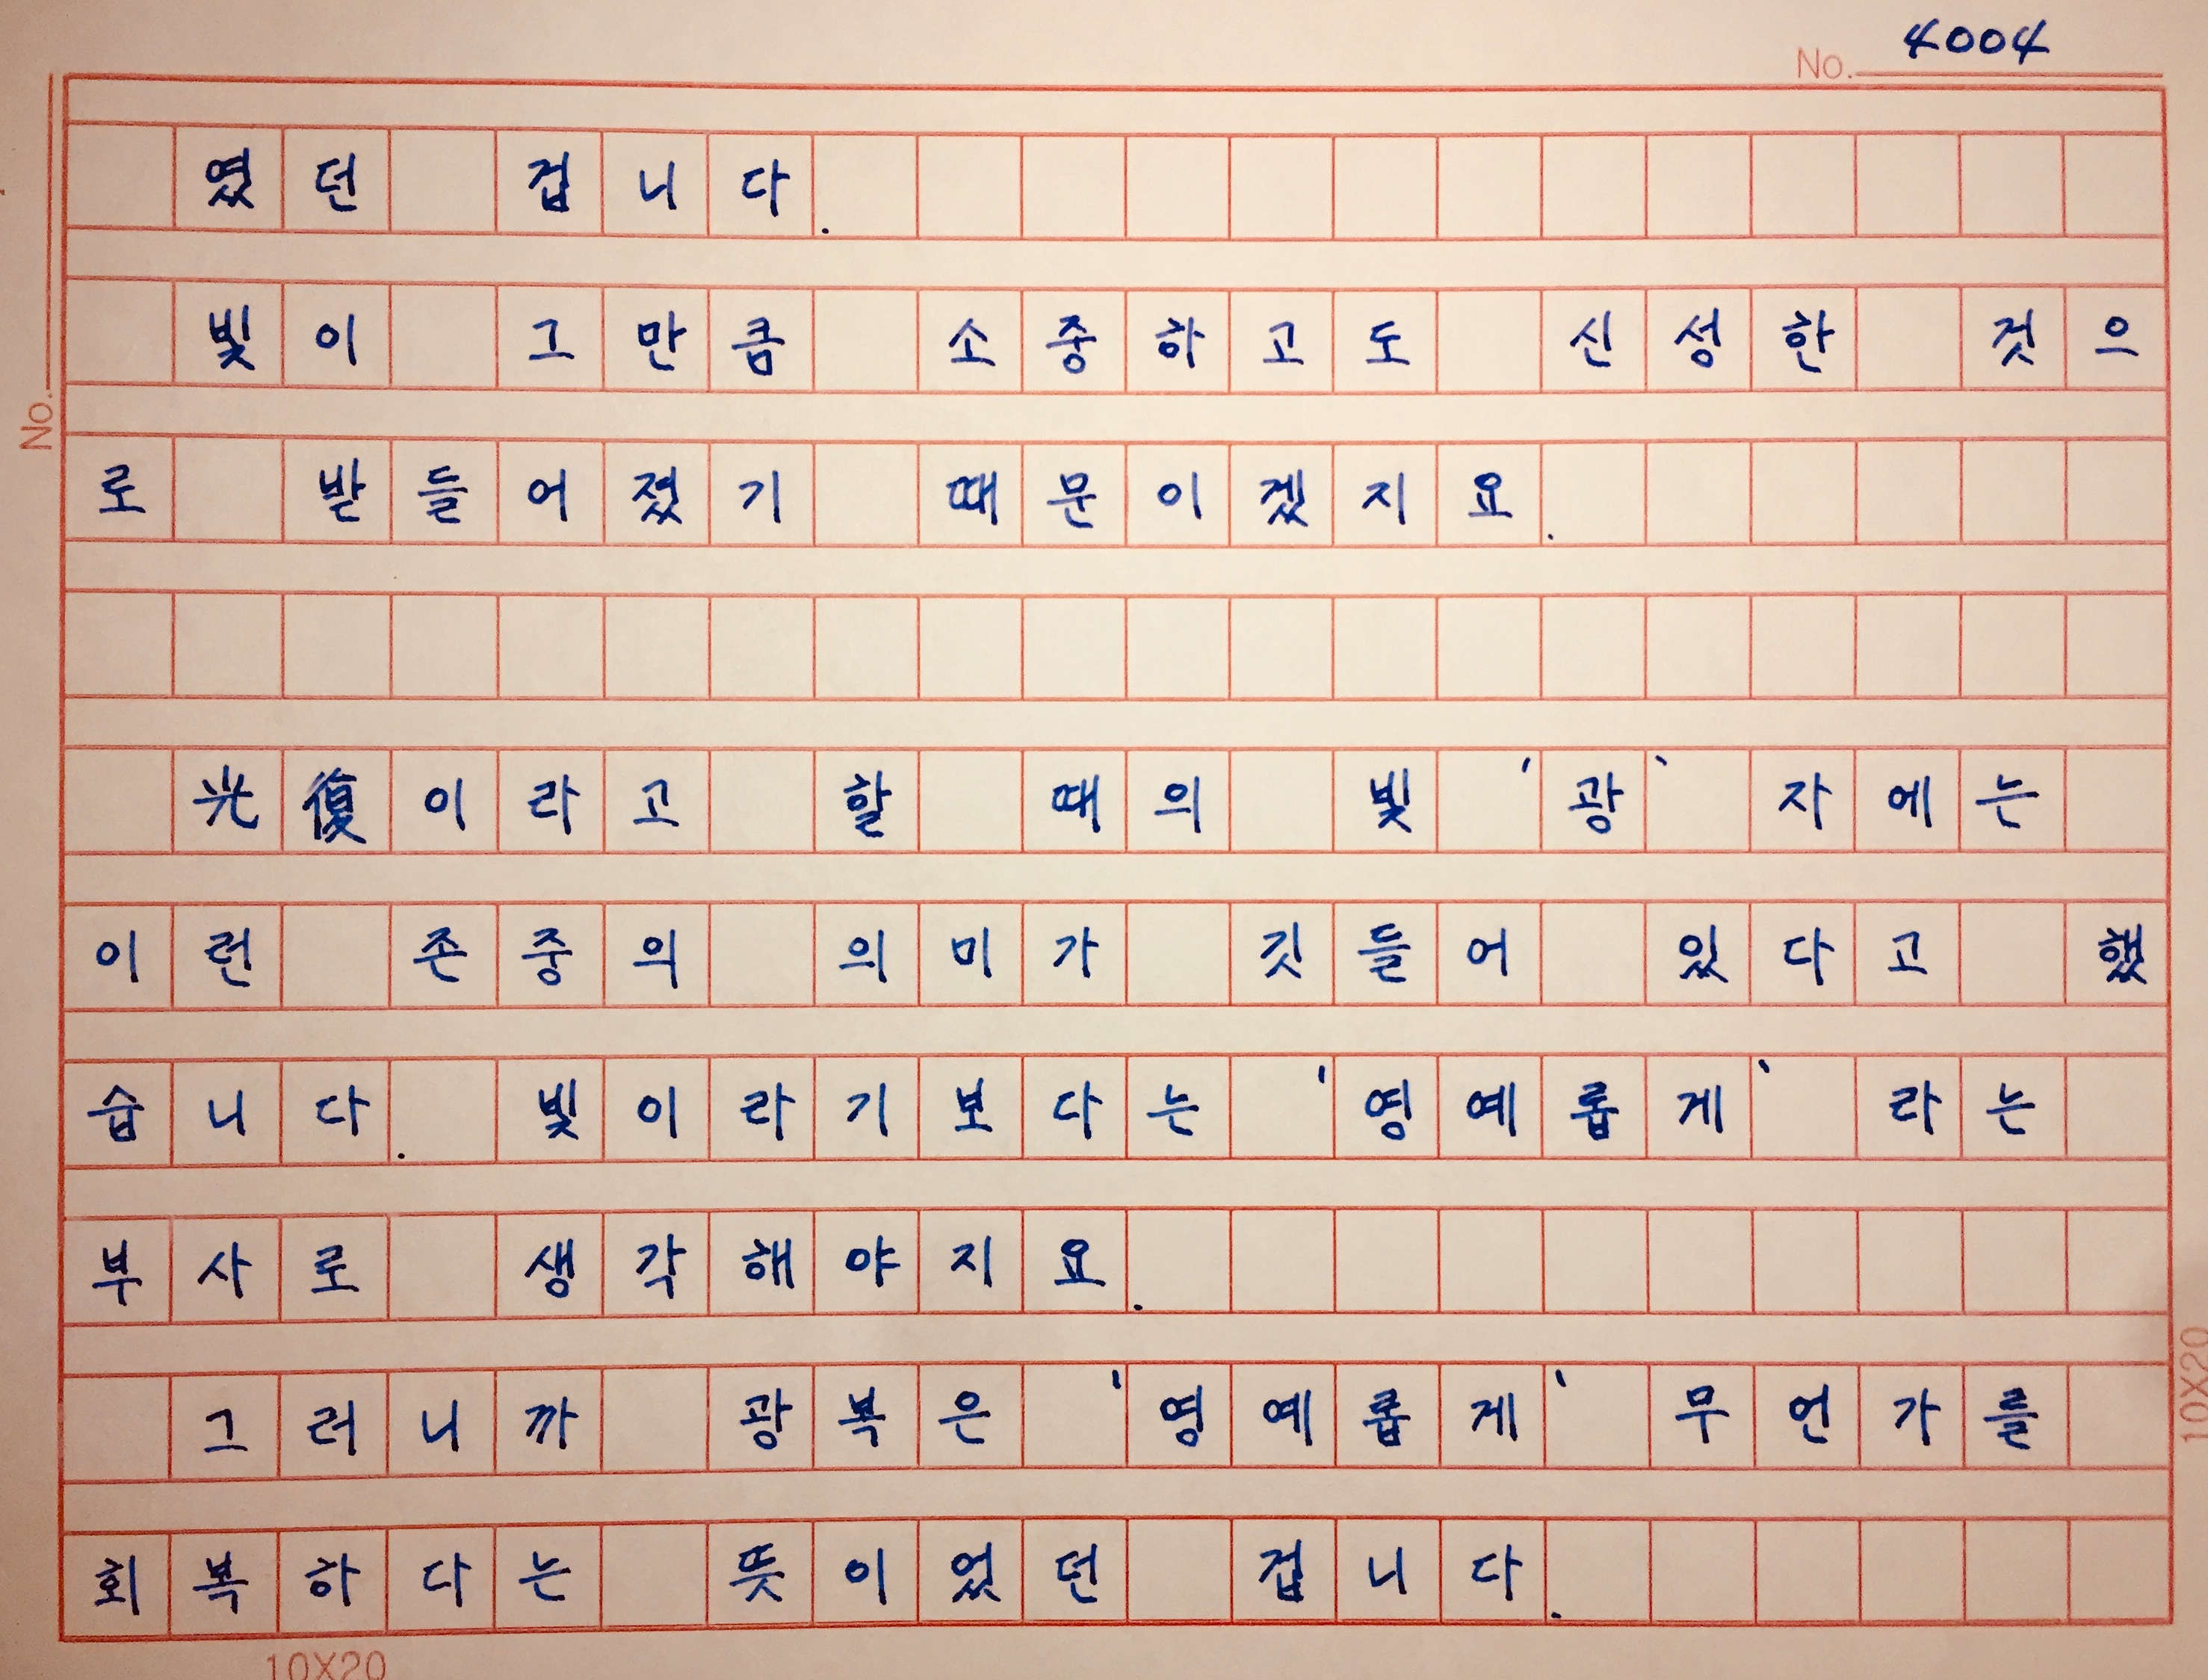 No. 4004
였던 겁니다.
빛이 그만큼 소중하고도 신성한 것으
No.
로 받들어졌기 때문이겠지요.
光復이라고 할 때의 빛 '광' 자에는
이런 존중의 의미가 깃들어 있다고 했
습니다. 빛이라기보다는 '영예롭게' 라는
부사로 생각해야지요.
그러니까 광복은 '영예롭게' 무언가를
회복하다는 뜻이었던 겁니다.
10X20
10X20